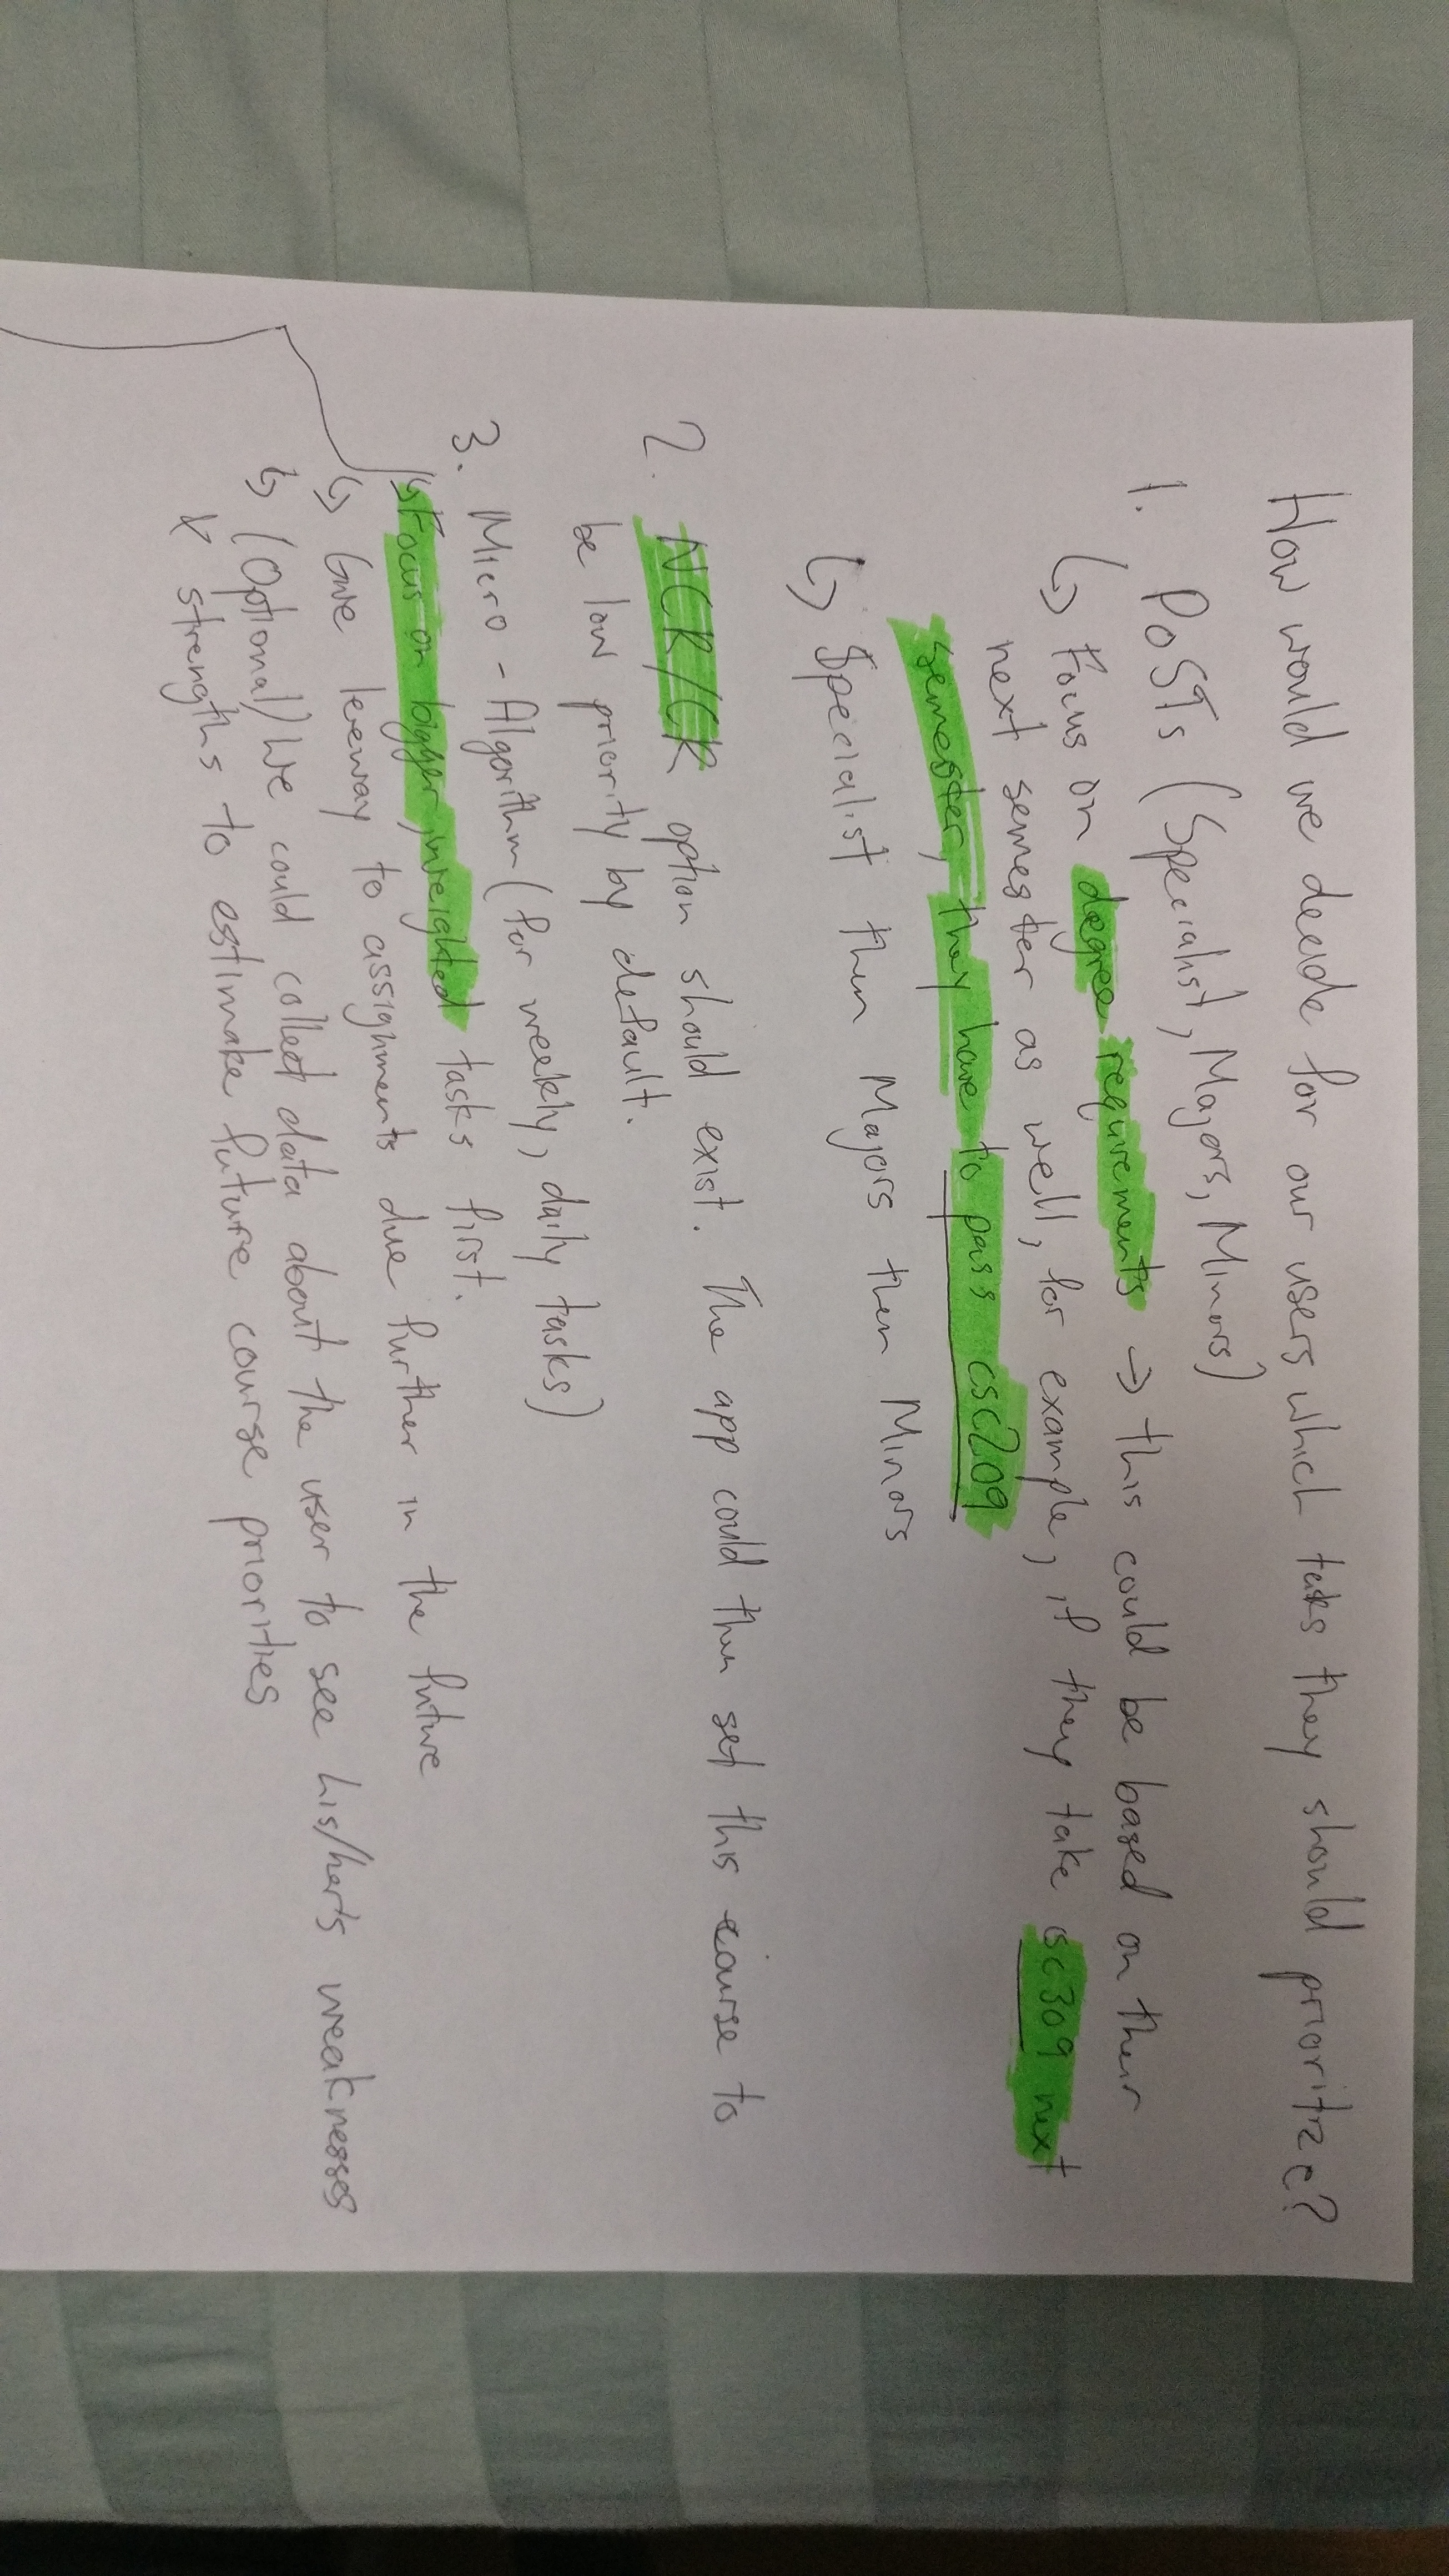 How would we decide for our users which tasks they should prioritize?
1. PoSTs (Specialist, Majors, Minors)
↳ Focus on degree requirements → this could be based on their
next semester as well, for example, if they take csc309 next
semester, they have to pass csc209
↳ Specialist then Majors then Minors
2. NCR/CR option should exist. The app could then set this course to
be low priority by default.
3. Micro-Algorithm (for weekly, daily tasks)
↳ Focus on bigger, weighted tasks first.
↳ Give leeway to assignments due further in the future
↳ (Optional) We could collect data about the user to see his/hers weaknesses
& strengths to estimake future course priorities